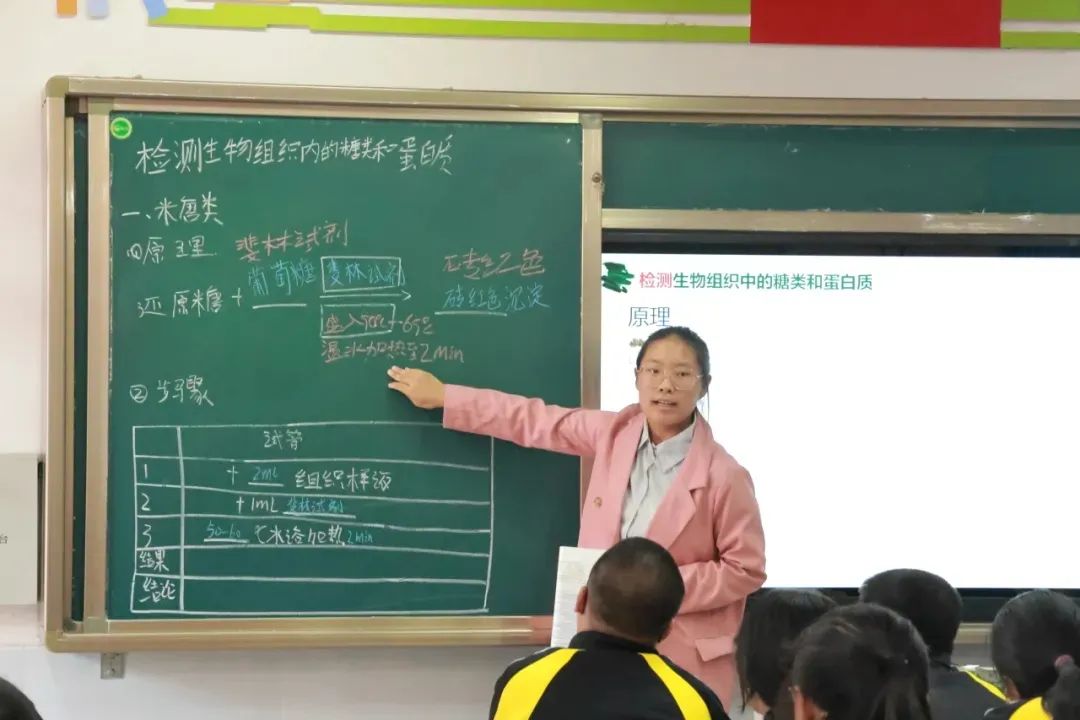 检测生物组织内的糖类和蛋白质
一、糖类
原理 斐林试剂
还原糖 + 葡萄糖 斐林试剂 砖红色沉淀
温水加热至2min
② 步骤
试管
1 + 2mL 组织样液
2 +1mL 斐林试剂
3 50-60 ℃水浴加热 2min
结果
结论
检测生物组织中的糖类和蛋白质
原理
台